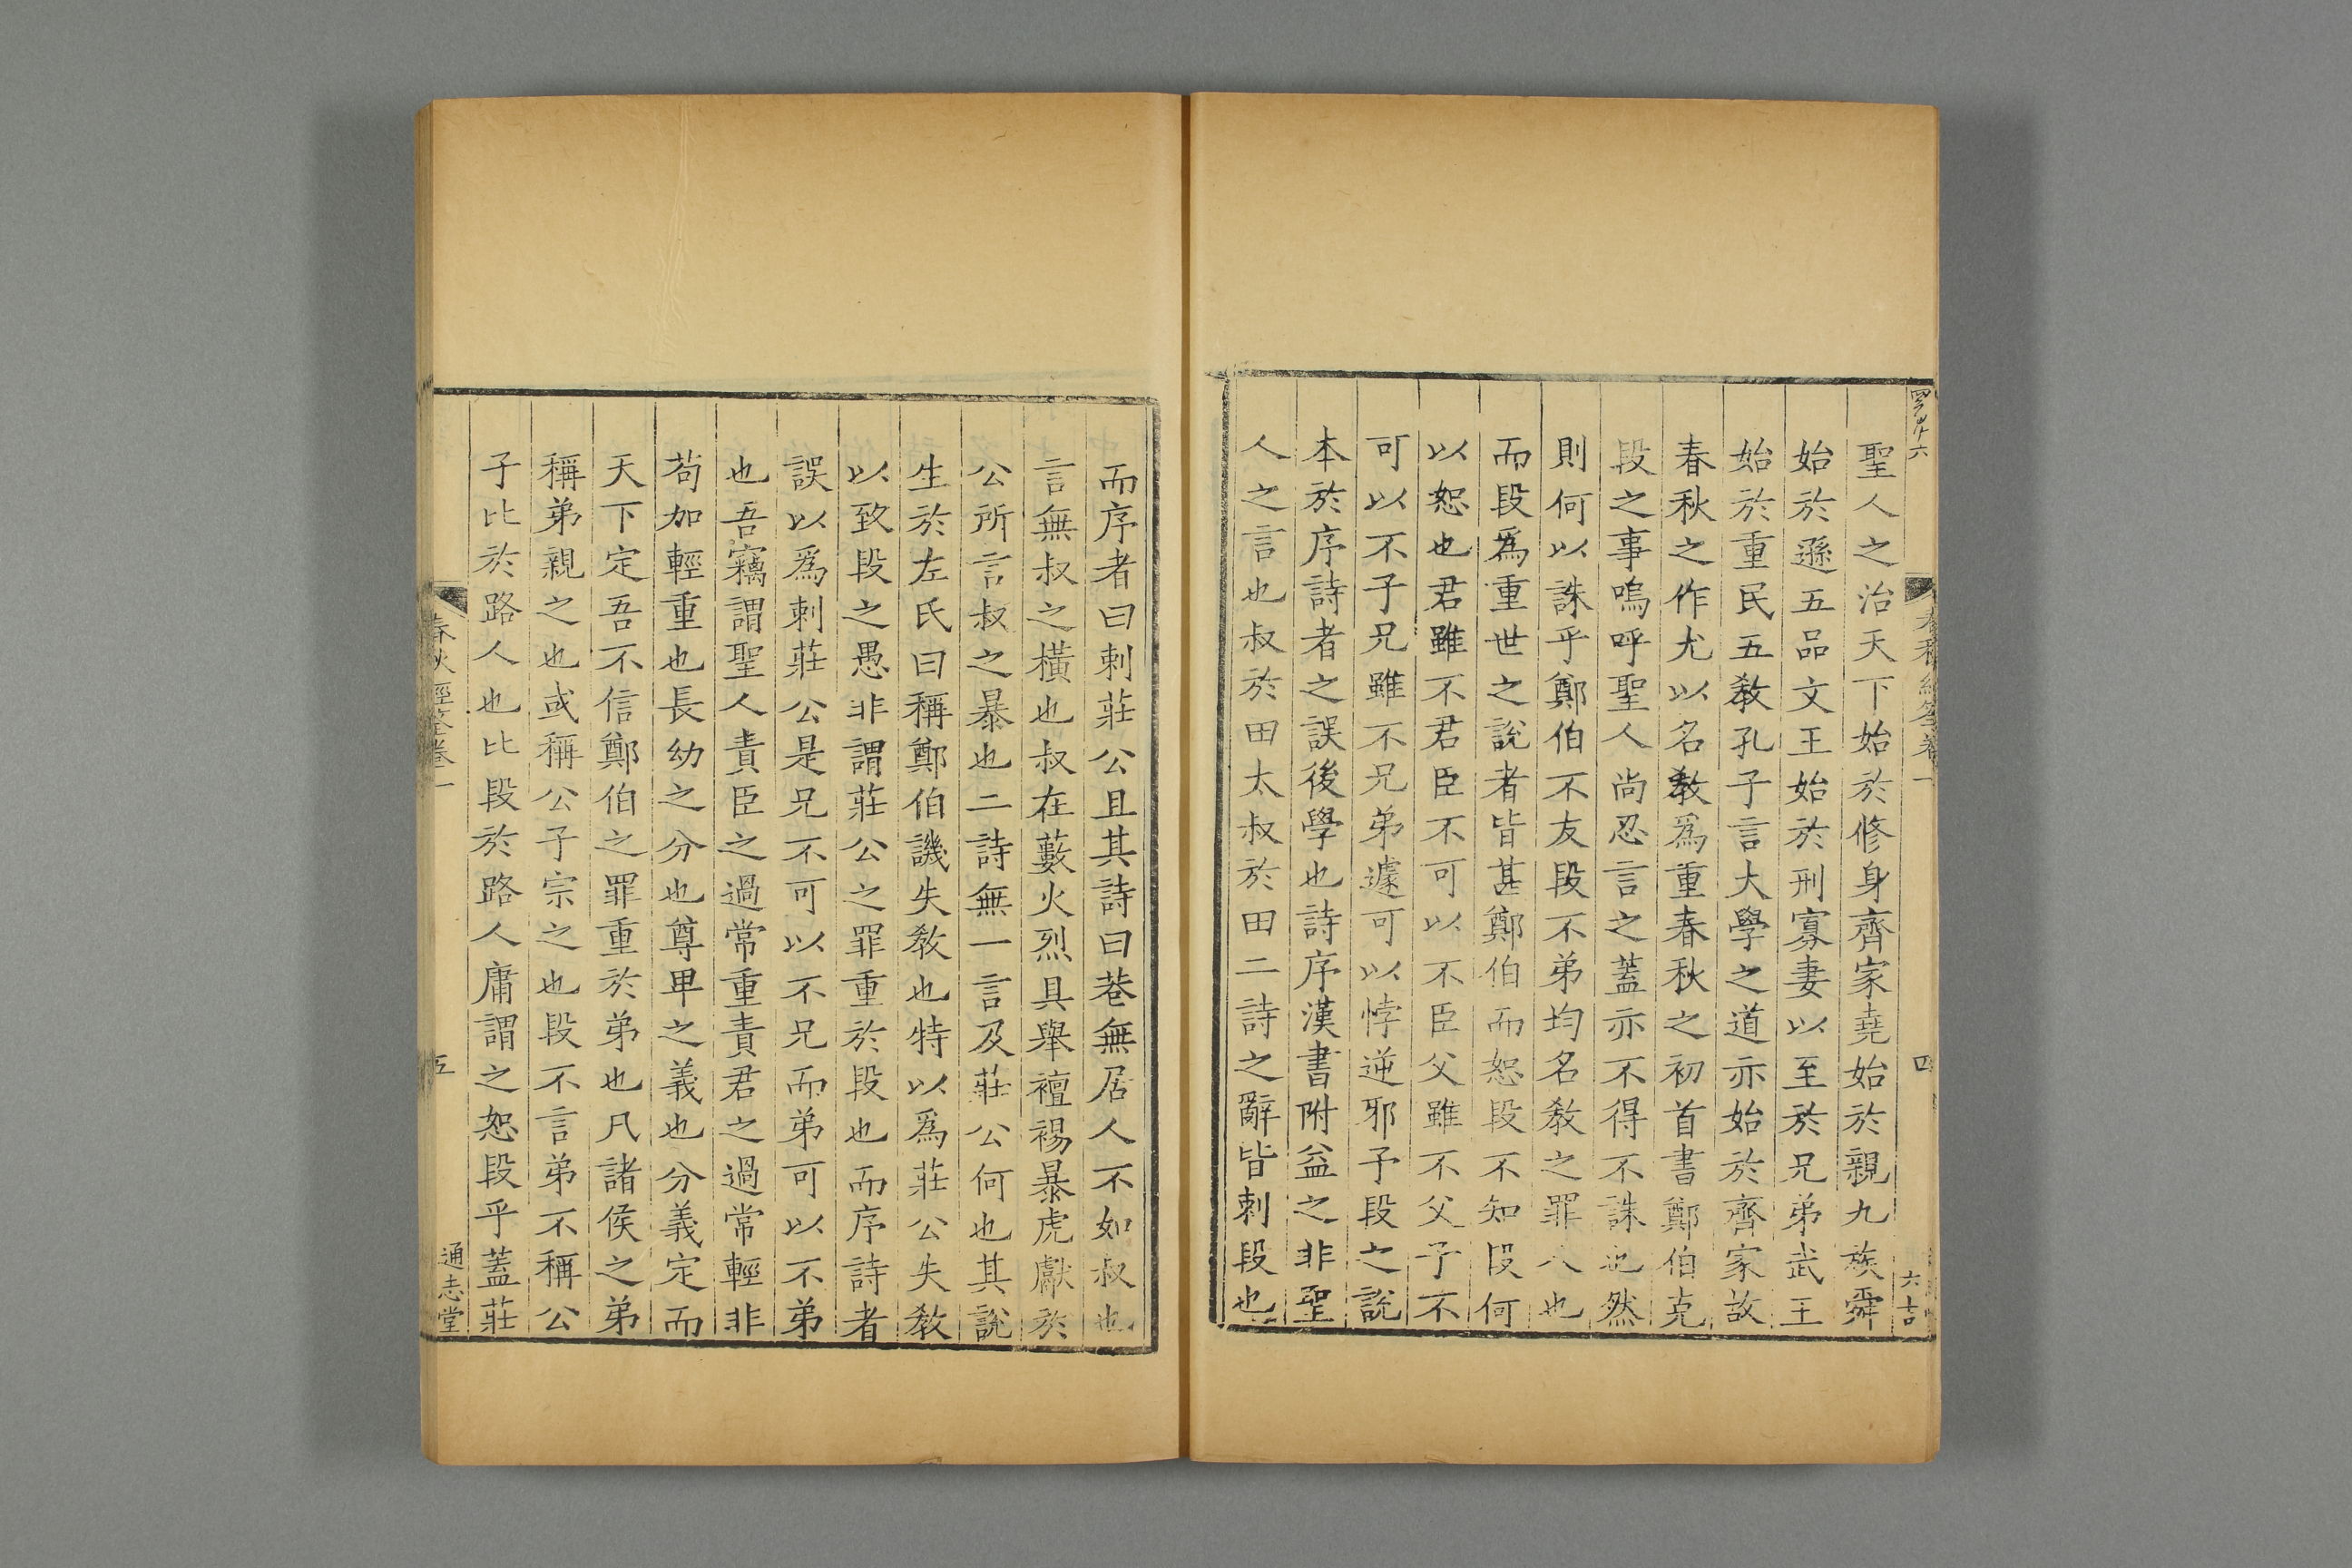 聖人之治天下始於修身齊家堯始於親九族舜
始於遜五品文王始於刑寡妻以至於兄弟武王
始於重民五教孔子言大學之道亦始於齊家故
春秋之作尤以名教爲重春秋之初首書鄭伯克
段之事嗚呼聖人尚忍言之蓋亦不得不誅也然
則何以誅乎鄭伯不友段不弟均名教之罪人也
而段爲重世之說者皆甚鄭伯而恕段不知段何
以恕也君雖不君臣不可以不臣父雖不父子不
可以不子兄雖不兄弟遽可以悖逆邪予段之說
本於序詩者之誤後學也詩序漢書附益之非聖
人之言也叔於田太叔於田二詩之辭皆刺段也
春秋經筌卷一
四
而序者曰刺莊公且其詩曰巷無居人不如叔也
言無叔之橫也叔在藪火烈具舉襢裼暴虎獻於
公所言叔之暴也二詩無一言及莊公何也其說
生於左氏曰稱鄭伯譏失教也特以爲莊公失教
以致段之愚非謂莊公之罪重於段也而序詩者
誤以爲刺莊公是兄不可以不兄而弟可以不弟
也吾竊謂聖人責臣之過常重責君之過常輕非
苟加輕重也長幼之分也尊卑之義也分義定而
天下定吾不信鄭伯之罪重於弟也凡諸侯之弟
稱弟親之也或稱公子宗之也段不言弟不稱公
子比於路人也比段於路人庸謂之恕段乎蓋莊
春秋經筌卷一
五
通志堂